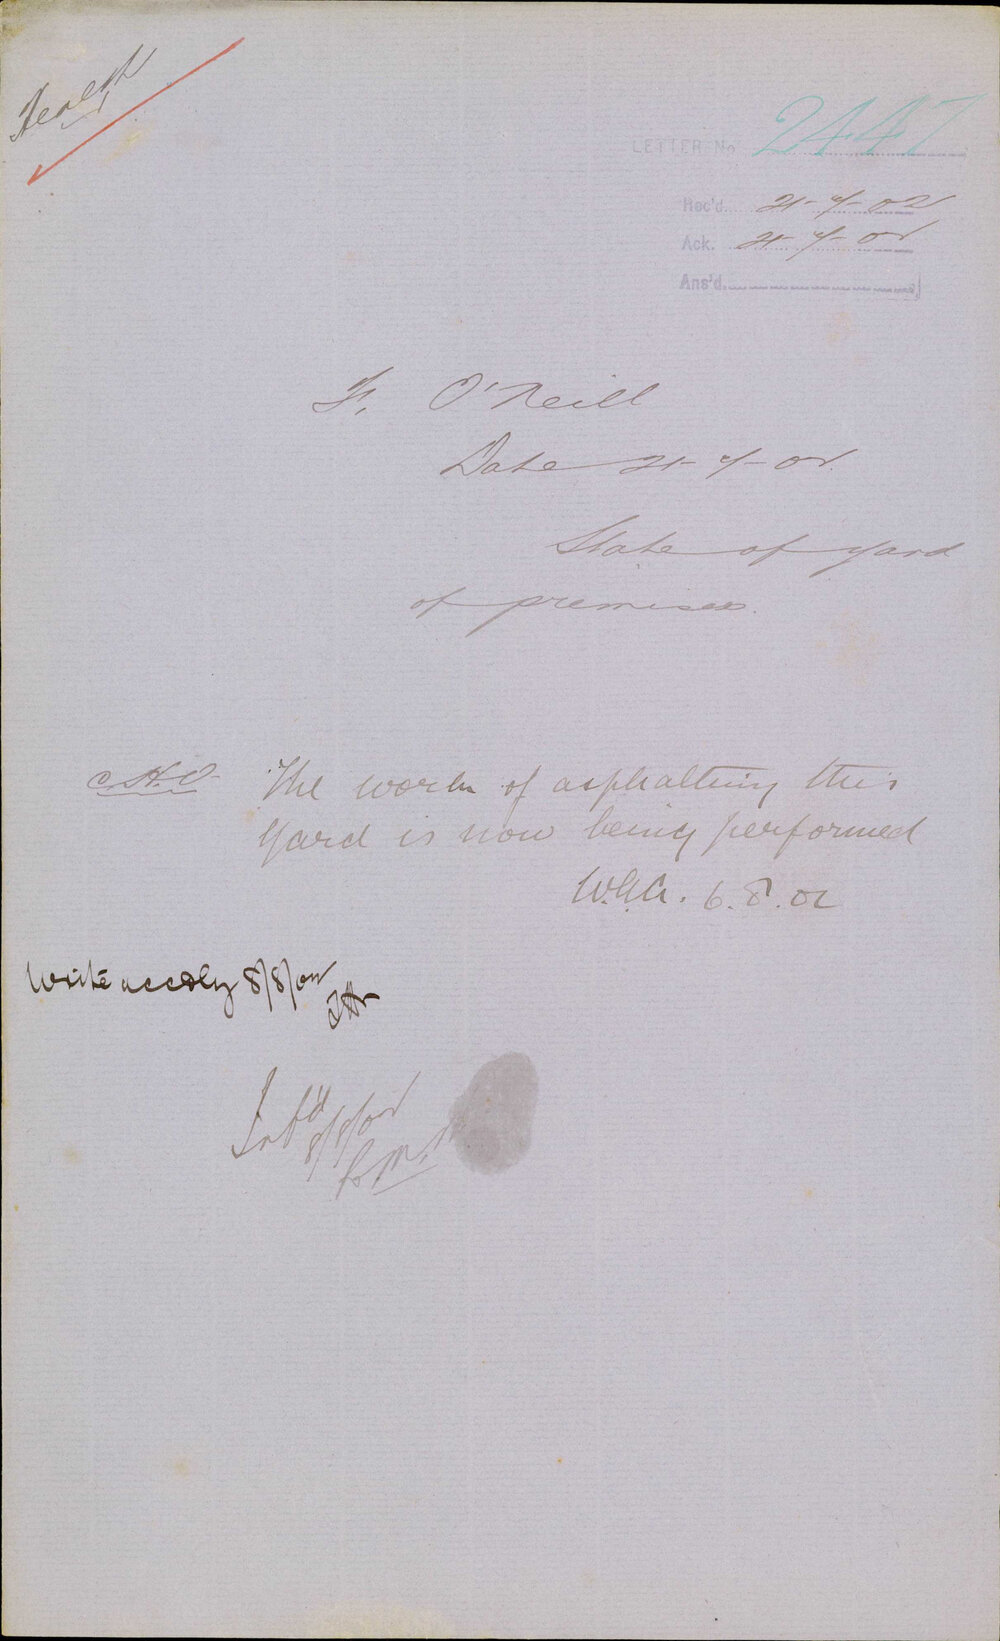 Health
LETTER No 2447
Rec'd. 21-7-02
Ack. 21-7-02
Ans'd.
F. O'Neill
Date 21-7-02
State of yard
of premises.
C.H.O. The work of asphalting this
yard is now being performed
6.8.02
Write accdly 8/8/02
Inf'd
8/8/02